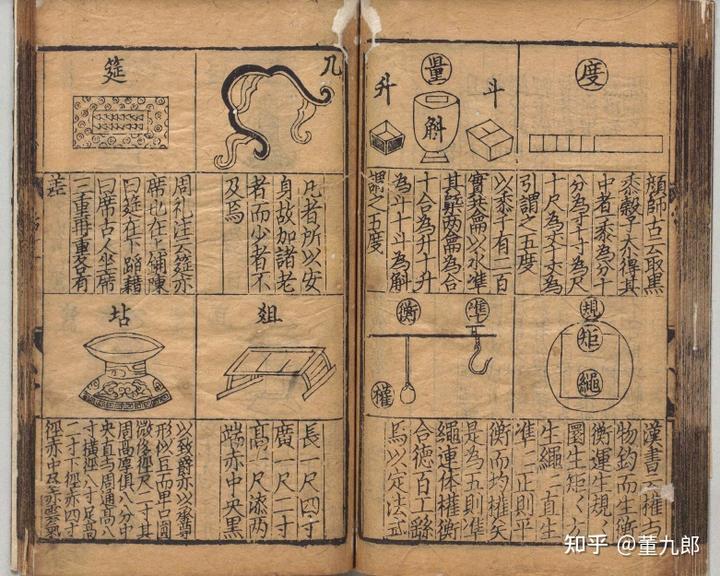 度
顏師古云取黑
黍穀子 得其
中者一黍為分十
分為寸十寸為尺
十尺為丈十丈為
引謂之五度
量
斗
斛
升
以黍子有二百
實其龠以水準
其槩兩龠為合
十合為升十升
為斗十斗為斛
謂之五度
規
矩
繩
漢書云權与
物鈞而生衡
衡運生規〻
圜生矩〻方
生繩〻直生
準〻正則平
衡而均權矣
是為五則準
繩連体權衡
合德百工繇
焉以定法式
準
衡
權
几
几者所以安
身故加諸老
者而少者不
及焉
筵
周礼注云筵亦
席也在上鋪陳
曰筵在下蹈藉
曰席古人坐席
三重再重各有
差
俎
長一尺四寸
廣一尺二寸
高一尺漆兩
端赤中央黑
坫
以致爵亦以承尊
形似豆而卑口圓
微侈徑尺二寸其
周高厚俱八分中
央直与周通高八
寸橫徑八寸足高
二寸下徑赤四寸
赤中 雲氣
知乎 @董九郎